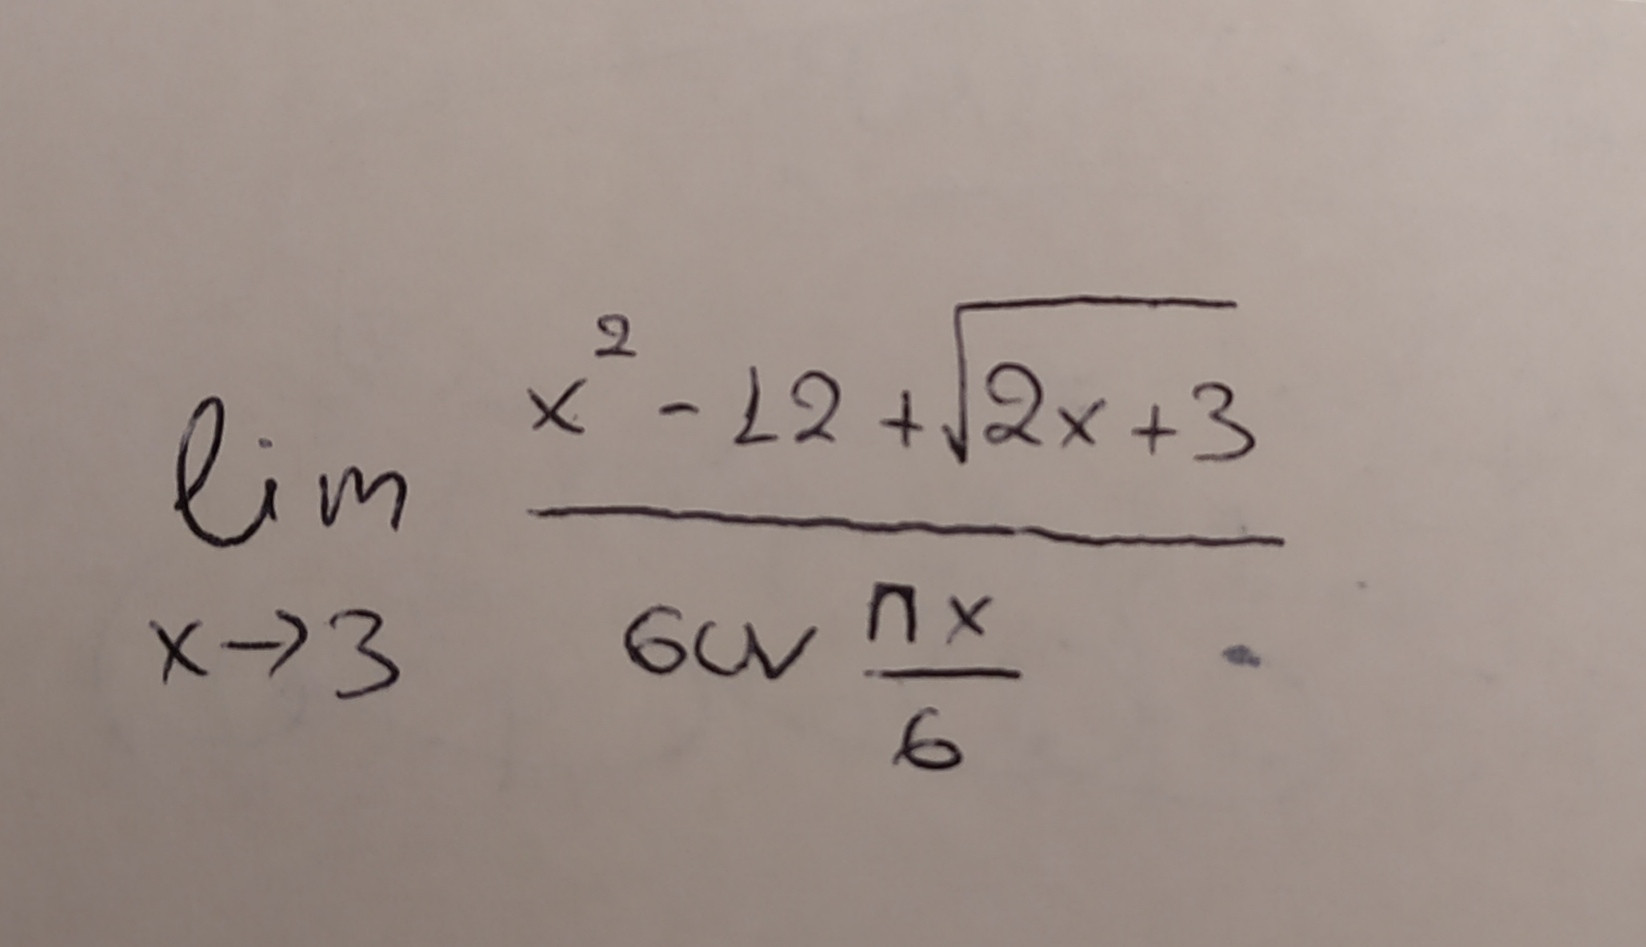 lim x→3 (x² - 12 + √(2x + 3)) / (συν (πx / 6))